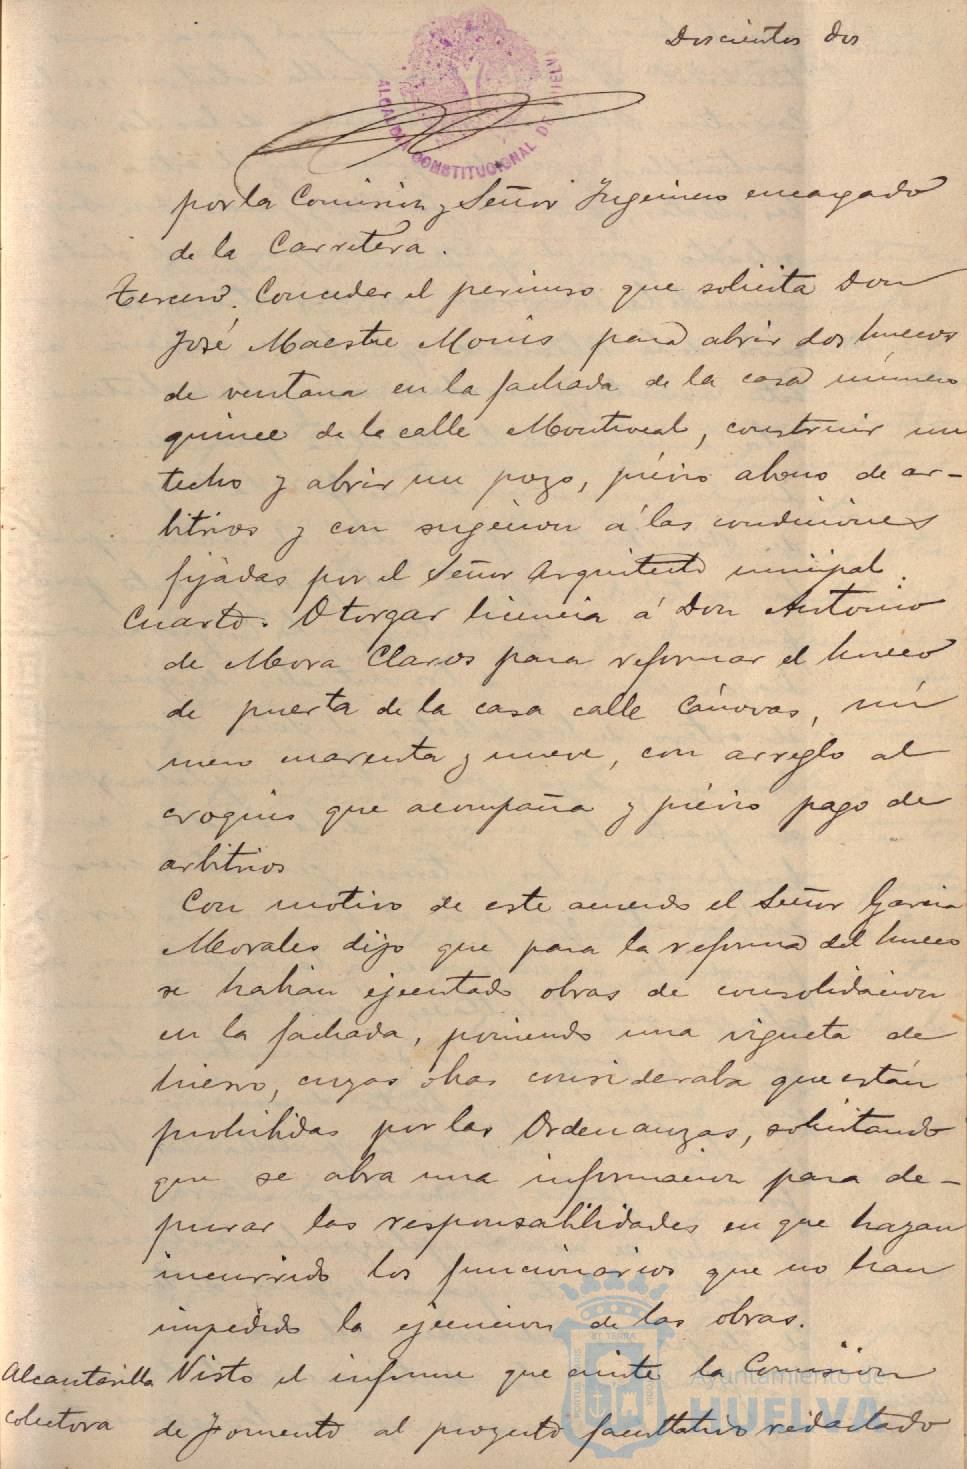 Doscientos dos
ALCALDIA CONSTITUCIONAL DE HUELVA
por la Comision y Señor Ingeniero encargado
de la Carretera.
Tercero. Conceder el permiso que solicita Don
José Maestre Monis para abrir dos huecos
de ventana en la fachada de la casa número
quince de la calle Montrocal, construir un
techo y abrir un pozo, prévio abono de ar-
bitrios y con sugecion á las condiciones
fijadas por el Señor Arquitecto municipal.
Cuarto. Otorgar licencia á Don Antonio
de Mora Claros para reformar el hueco
de puerta de la casa calle Cánovas, nú
mero cuarenta y nueve, con arreglo al
croquis que acompaña y prévio pago de
arbitrios
Con motivo de este acuerdo el Señor Garcia
Morales dijo que para la reforma del hueco
se habian ejecutado obras de consolidacion
en la fachada, poniendo una vigueta de
hierro, cuyas obras consideraba que están
prohibidas por las Ordenanzas, solicitando
que se abra una informacion para de-
purar las responsabilidades en que hayan
incurrido los funcionarios que no han
impedido la ejecucion de las obras.
Alcantarilla
colectora
Visto el informe que emite la Comision
de Fomento al proyecto facultativo redactado
Ayuntamiento de
HUELVA